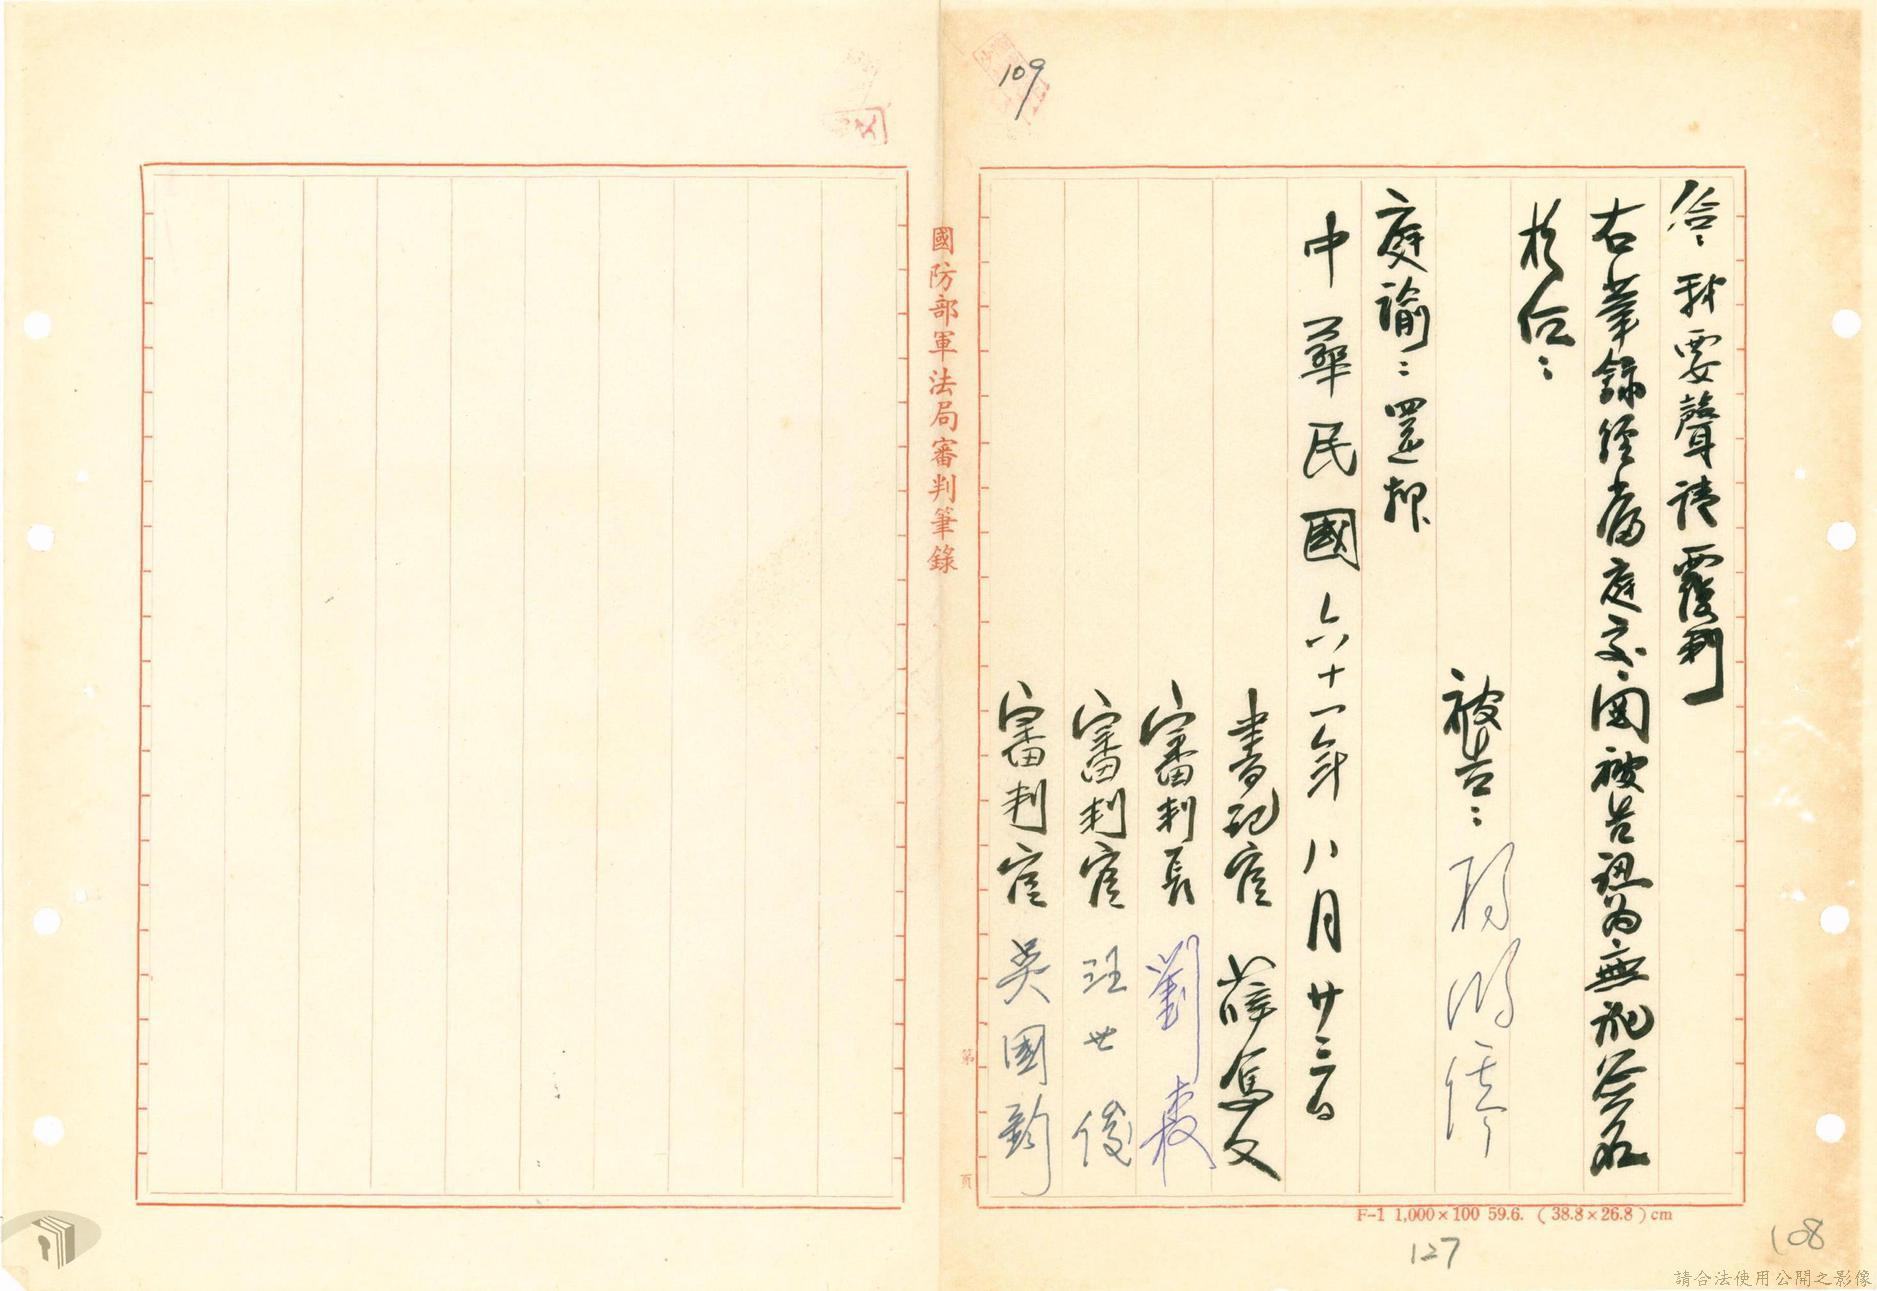 109
答：我要聲請覆判
右筆錄經當庭交閱被告認為無訛簽名
於后：
被告：楊鴻儒
庭諭：還押
中華民國六十一年八月廿三日
書記官 薛篤文
審判長 劉
審判官 汪世俊
審判官 吳國鈞
國防部軍法局審判筆錄
第 頁
F-1 1,000×100 59.6. (38.8×26.8) cm
127
108
請合法使用公開之影像